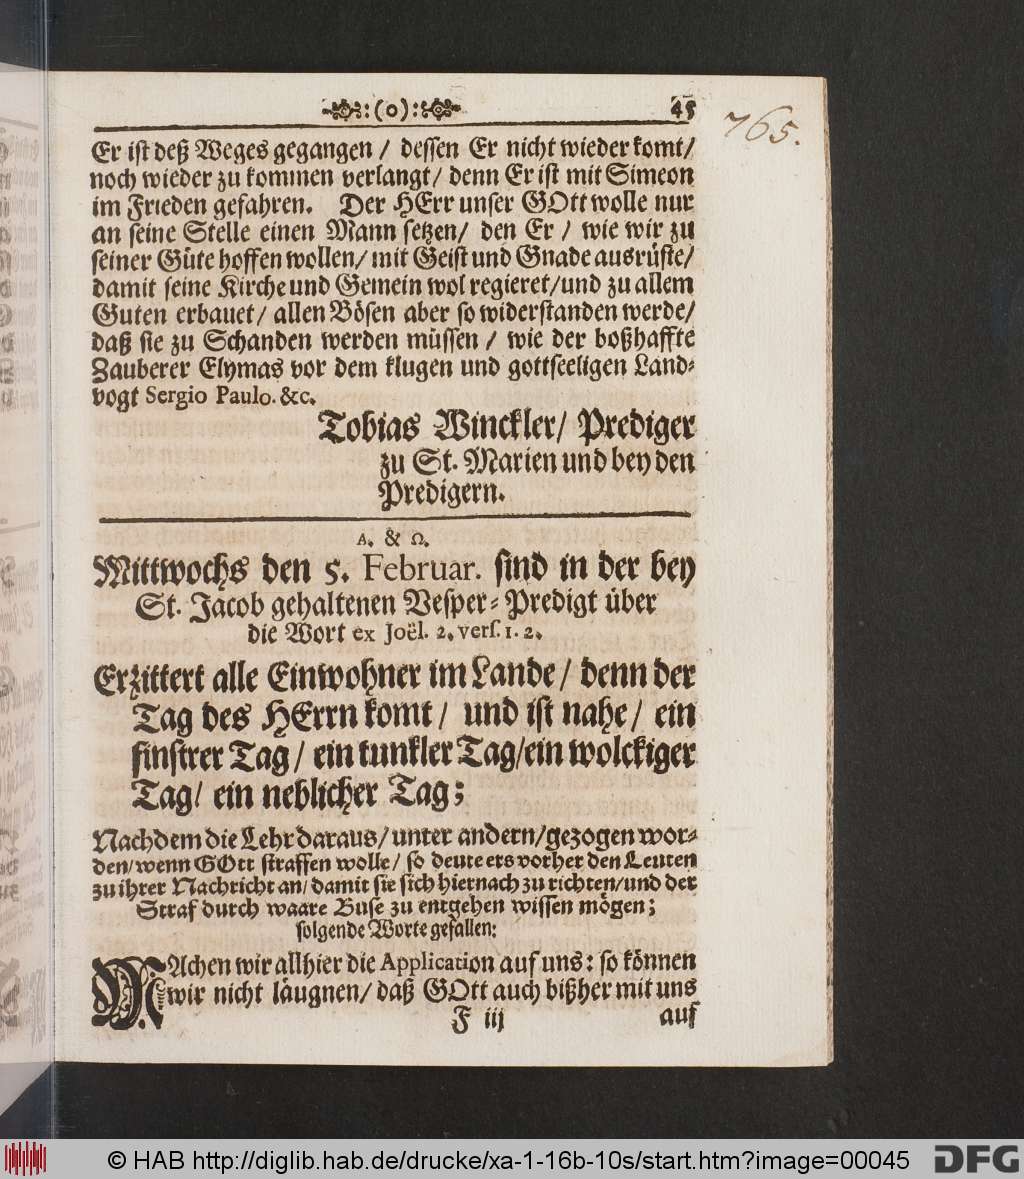 :(o): 45
765.
Er ist deß Weges gegangen / dessen Er nicht wieder komt/
noch wieder zu kommen verlangt/ denn Er ist mit Simeon
im Frieden gefahren. Der HErr unser GOtt wolle nur
an seine Stelle einen Mann setzen/ den Er / wie wir zu
seiner Güte hoffen wollen/ mit Geist und Gnade ausrüste/
damit seine Kirche und Gemein wol regieret/und zu allem
Guten erbauet/ allen Bösen aber so widerstanden werde/
daß sie zu Schanden werden müssen / wie der boßhaffte
Zauberer Elymas vor dem klugen und gottseeligen Land-
vogt Sergio Paulo. &c.
Tobias Winckler/ Prediger
zu St. Marien und bey den
Predigern.
A. & Ω.
Mittwochs den 5. Februar. sind in der bey
St. Jacob gehaltenen Vesper-Predigt über
die Wort ex Joël. 2. vers. 1. 2.
Erzittert alle Einwohner im Lande/ denn der
Tag des HErrn komt/ und ist nahe/ ein
finstrer Tag/ ein tunkler Tag/ein wolckiger
Tag/ ein neblicher Tag;
Nachdem die Lehr daraus/unter andern/gezogen wor-
den/wenn GOtt straffen wolle/ so deute ers vorher den Leuten
zu ihrer Nachricht an/damit sie sich hiernach zu richten/und der
Straf durch waare Buse zu entgehen wissen mögen;
folgende Worte gefallen:
MAchen wir allhier die Application auf uns: so können
wir nicht läugnen/ daß GOtt auch bißher mit uns
F iij auf
© HAB http://diglib.hab.de/drucke/xa-1-16b-10s/start.htm?image=00045 DFG